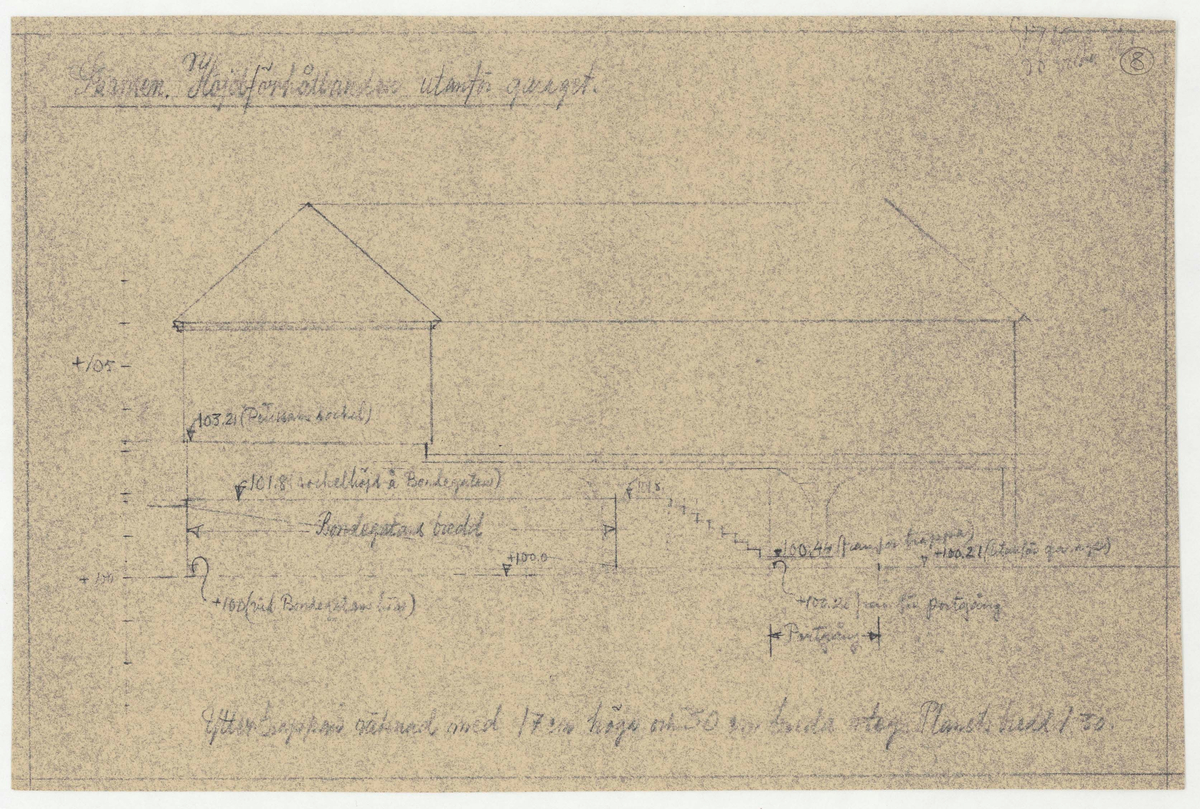 Höjdförhållanden utanför garaget.
8
+105
103.21 (Petissans sockel)
101.8 (sockelhöjd å Bondegatan)
Bondegatans bredd
+100.0
100.44 (framför trappa)
+100.21 (utanför garage)
+100
+100 (vid Bondegatans hus)
+100.21 framför portgång
Portgång
Yttertrappan räknad med 17 cm höga och 30 cm breda steg. Planets bredd 1.30.